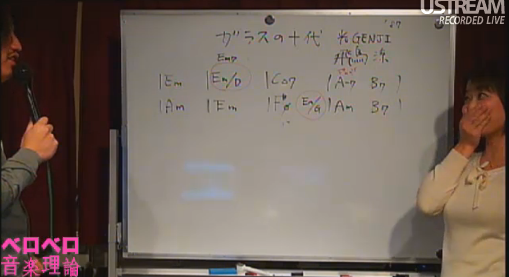 USTREAM
RECORDED LIVE
'87
ガラスの十代 光GENJI
飛鳥涼
Em7
|Em |Em/D |C△7 |Am7 B7 |
|Am |Em |F#ø Em/G |Am B7 |
ペロペロ
音楽理論